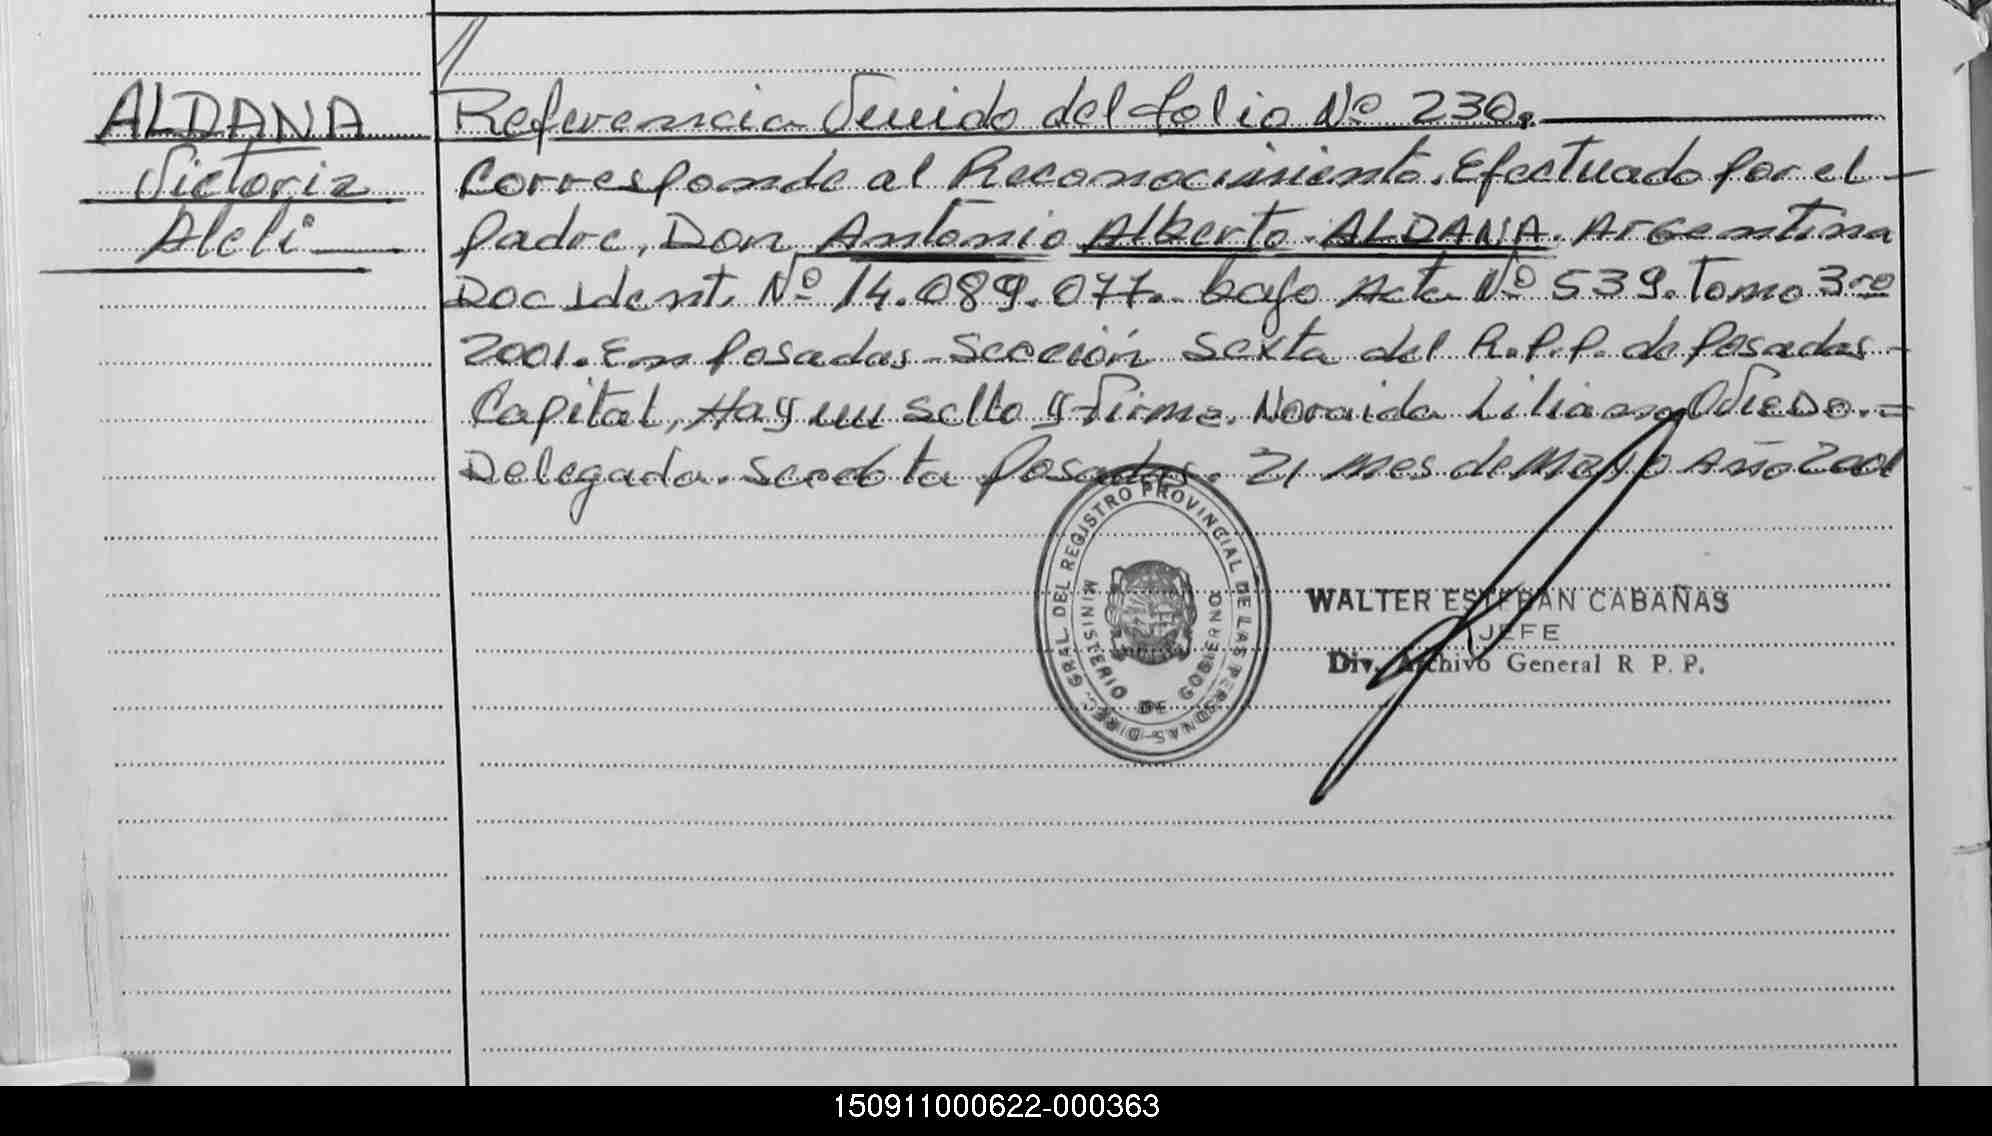 ALDANA
Victoria
Aleli
Referencia Venido del folio Nº 230.
Corresponde al Reconocimiento. Efectuado por el
padre, Don Antonio Alberto. ALDANA. Argentina
Doc Ident. Nº 14.089.077. bajo Acta Nº 539. Tomo 3ro
2001. En Posadas - Sección Sexta del R.P.P. de Posadas -
Capital, Hay un sello y firma. Noraida Liliana Oviedo. =
Delegada. Posadas. 21 mes de Mayo Año 2001
DIREC. GRAL. DEL REGISTRO PROVINCIAL DE LAS PERSONAS
MINISTERIO DE GOBIERNO
WALTER ESTEBAN CABAÑAS
JEFE
Div. Archivo General R P. P.
150911000622-000363